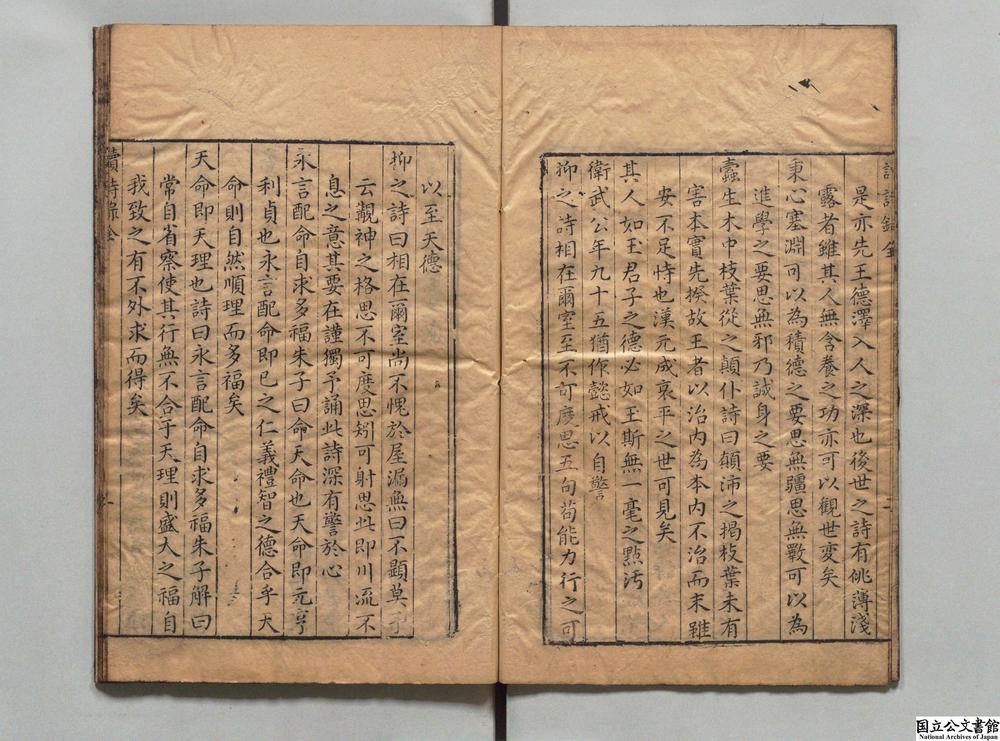 是亦先王德澤入人之深也後世之詩有佻薄淺
露者雖其人無含養之功亦可以觀世變矣
秉心塞淵可以為積德之要思無疆思無斁可以為
進學之要思無邪乃誠身之要
蠹生木中枝葉從之顛仆詩曰顛沛之揭枝葉未有
害本實先撥故王者以治內為本內不治而末雖
安不足恃也漢元成哀平之世可見矣
其人如玉君子之德必如玉斯無一毫之點污
衛武公年九十五猶作懿戒以自警
抑之詩相在爾室至不可度思五句茍能力行之可
以至天德
抑之詩曰相在爾室尚不愧於屋漏無曰不顯莫予
云覯神之格思不可度思矧可射思此即川流不
息之意其要在謹獨予誦此詩深有警於心
永言配命自求多福朱子曰命天命也天命即元亨
利貞也永言配命即已之仁義禮智之德合乎天
命則自然順理而多福矣
天命即天理也詩曰永言配命自求多福朱子解曰
常自省察使其行無不合于天理則盛大之福自
我致之有不外求而得矣
讀詩錄全
国立公文書館
National Archives of Japan